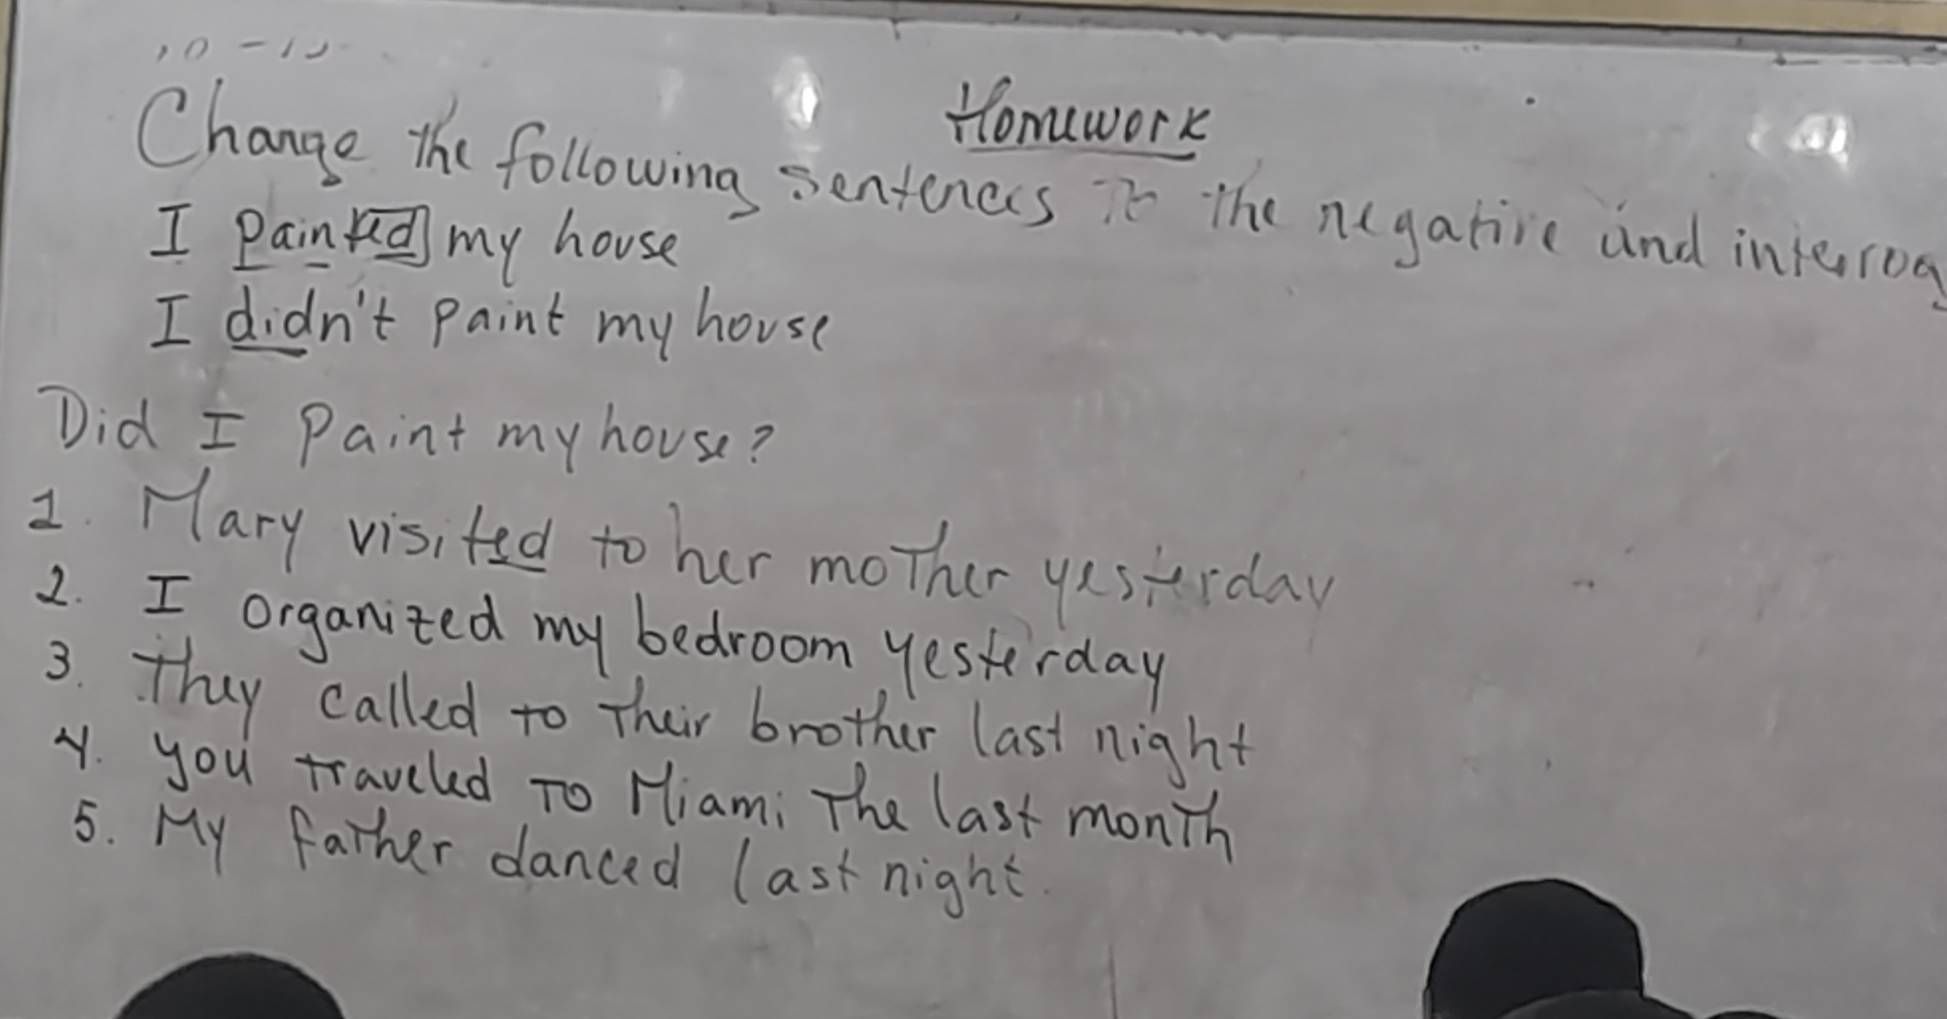 Homework
Change the following sentences to the negative and interrog
I painted my house
I didn't paint my house
Did I paint my house?
1. Mary visited to her mother yesterday
2. I organized my bedroom yesterday
3. They called to their brother last night
4. you traveled TO Miami the last month
5. My father danced last night.